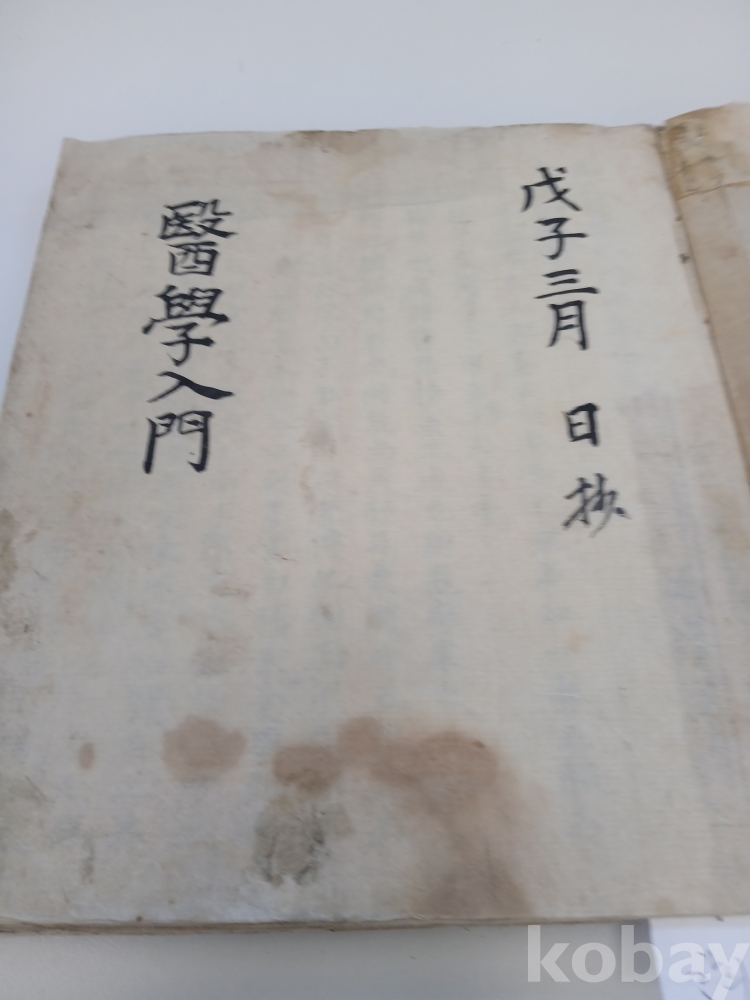 戊子三月 日抄
醫學入門
kobay